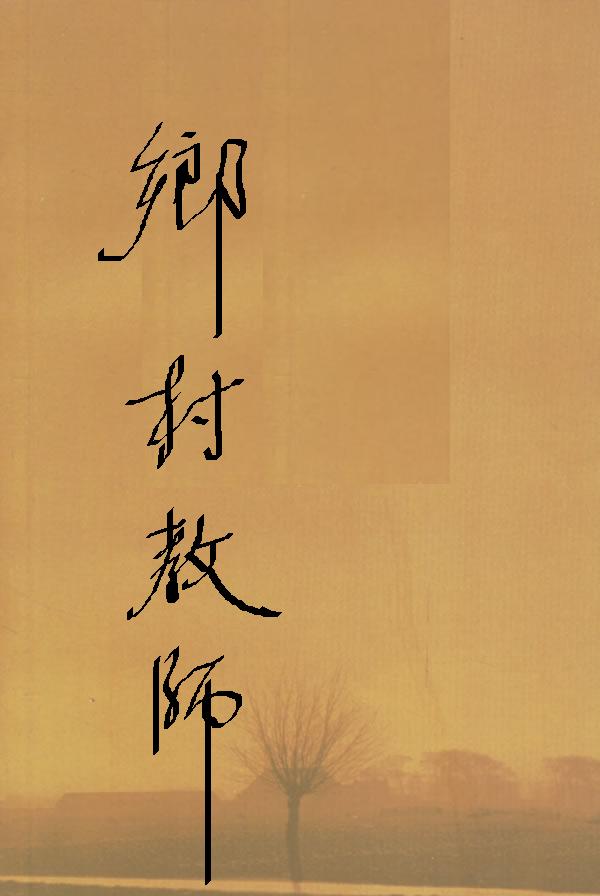 鄉村教師